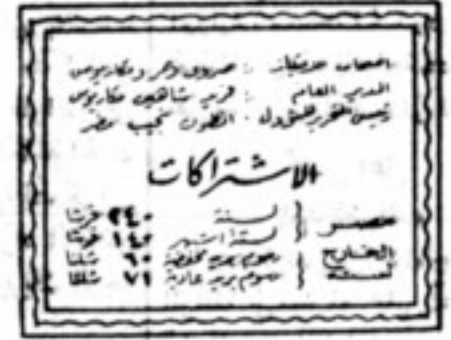 اصحاب الامتياز : صروف ونمر ومكاريوس
المدير العام : فريد شاهين مكاريوس
رئيس التحرير المسؤول : انطون نجيب مطر
الاشتراكات
مصر { لسنة ٢٤٠ غرشا
لستة اشهر ١٤٢ غرشا
الخارج لسنة { رسوم بريد مخفضة ٦٠ شلنا
رسوم بريد عادية ٧٦ شلنا